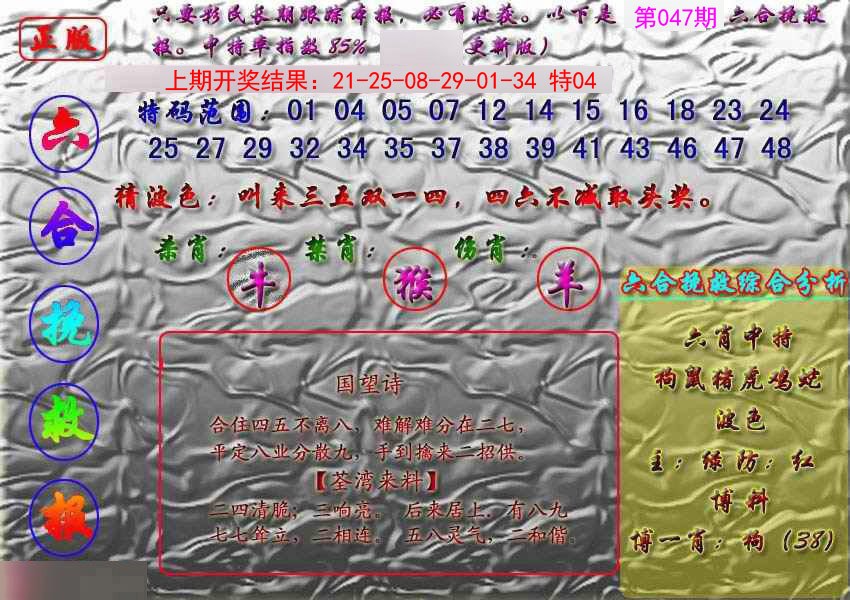 正版
只要彩民长期跟踪本报，必有收获。以下是 第047期 六合挽救
报。中持率指数85% 更新版）
上期开奖结果：21-25-08-29-01-34 特04
特码范围：01 04 05 07 12 14 15 16 18 23 24
25 27 29 32 34 35 37 38 39 41 43 46 47 48
猜波色：叫来三五双一四，四六不减取头奖。
杀肖：牛 禁肖：猴 伤肖：羊
六合挽救报
国望诗
合住四五不离八，难解难分在二七，
平定八业分散九，手到擒来二招供。
【荃湾来料】
二四清脆；三响亮。 后来居上．有八九
七七耸立，二相连。 五八灵气，二和偕。
六合挽救综合分析
六肖中持
狗鼠猪虎鸡蛇
波色
主：绿 防：红
博料
博一肖：狗（38）